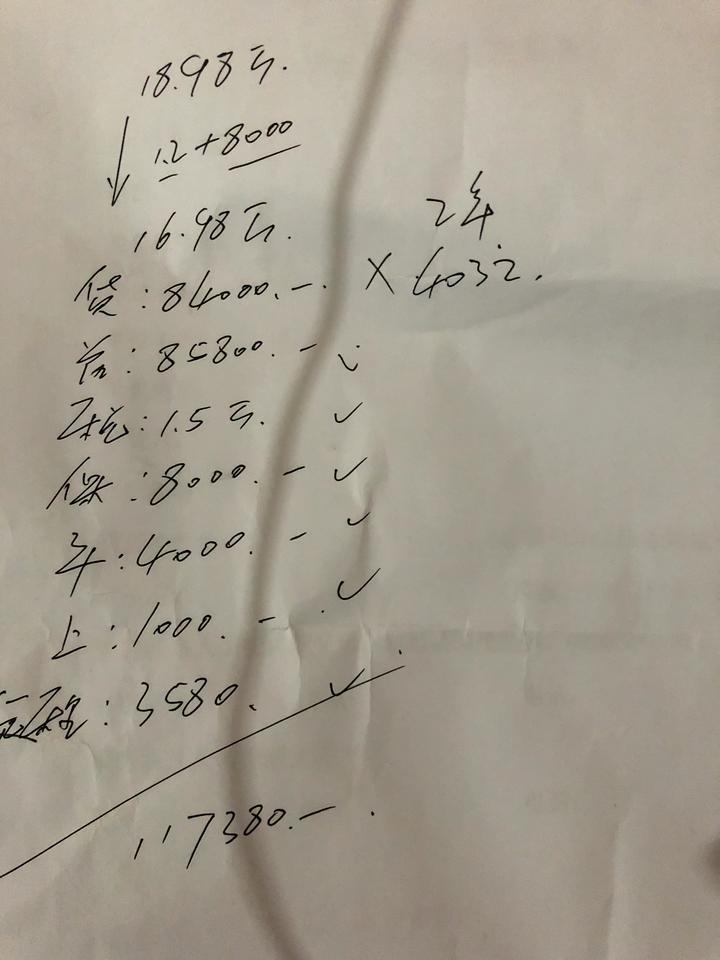 18.98万.
1.2+8000
16.98万.
2年
贷:84000.- × 4032.
首:85800.- ✓
税:1.5万. ✓
保:8000.- ✓
年:4000.- ✓
上:1000.- ✓
:3580. ✓
117380.-.